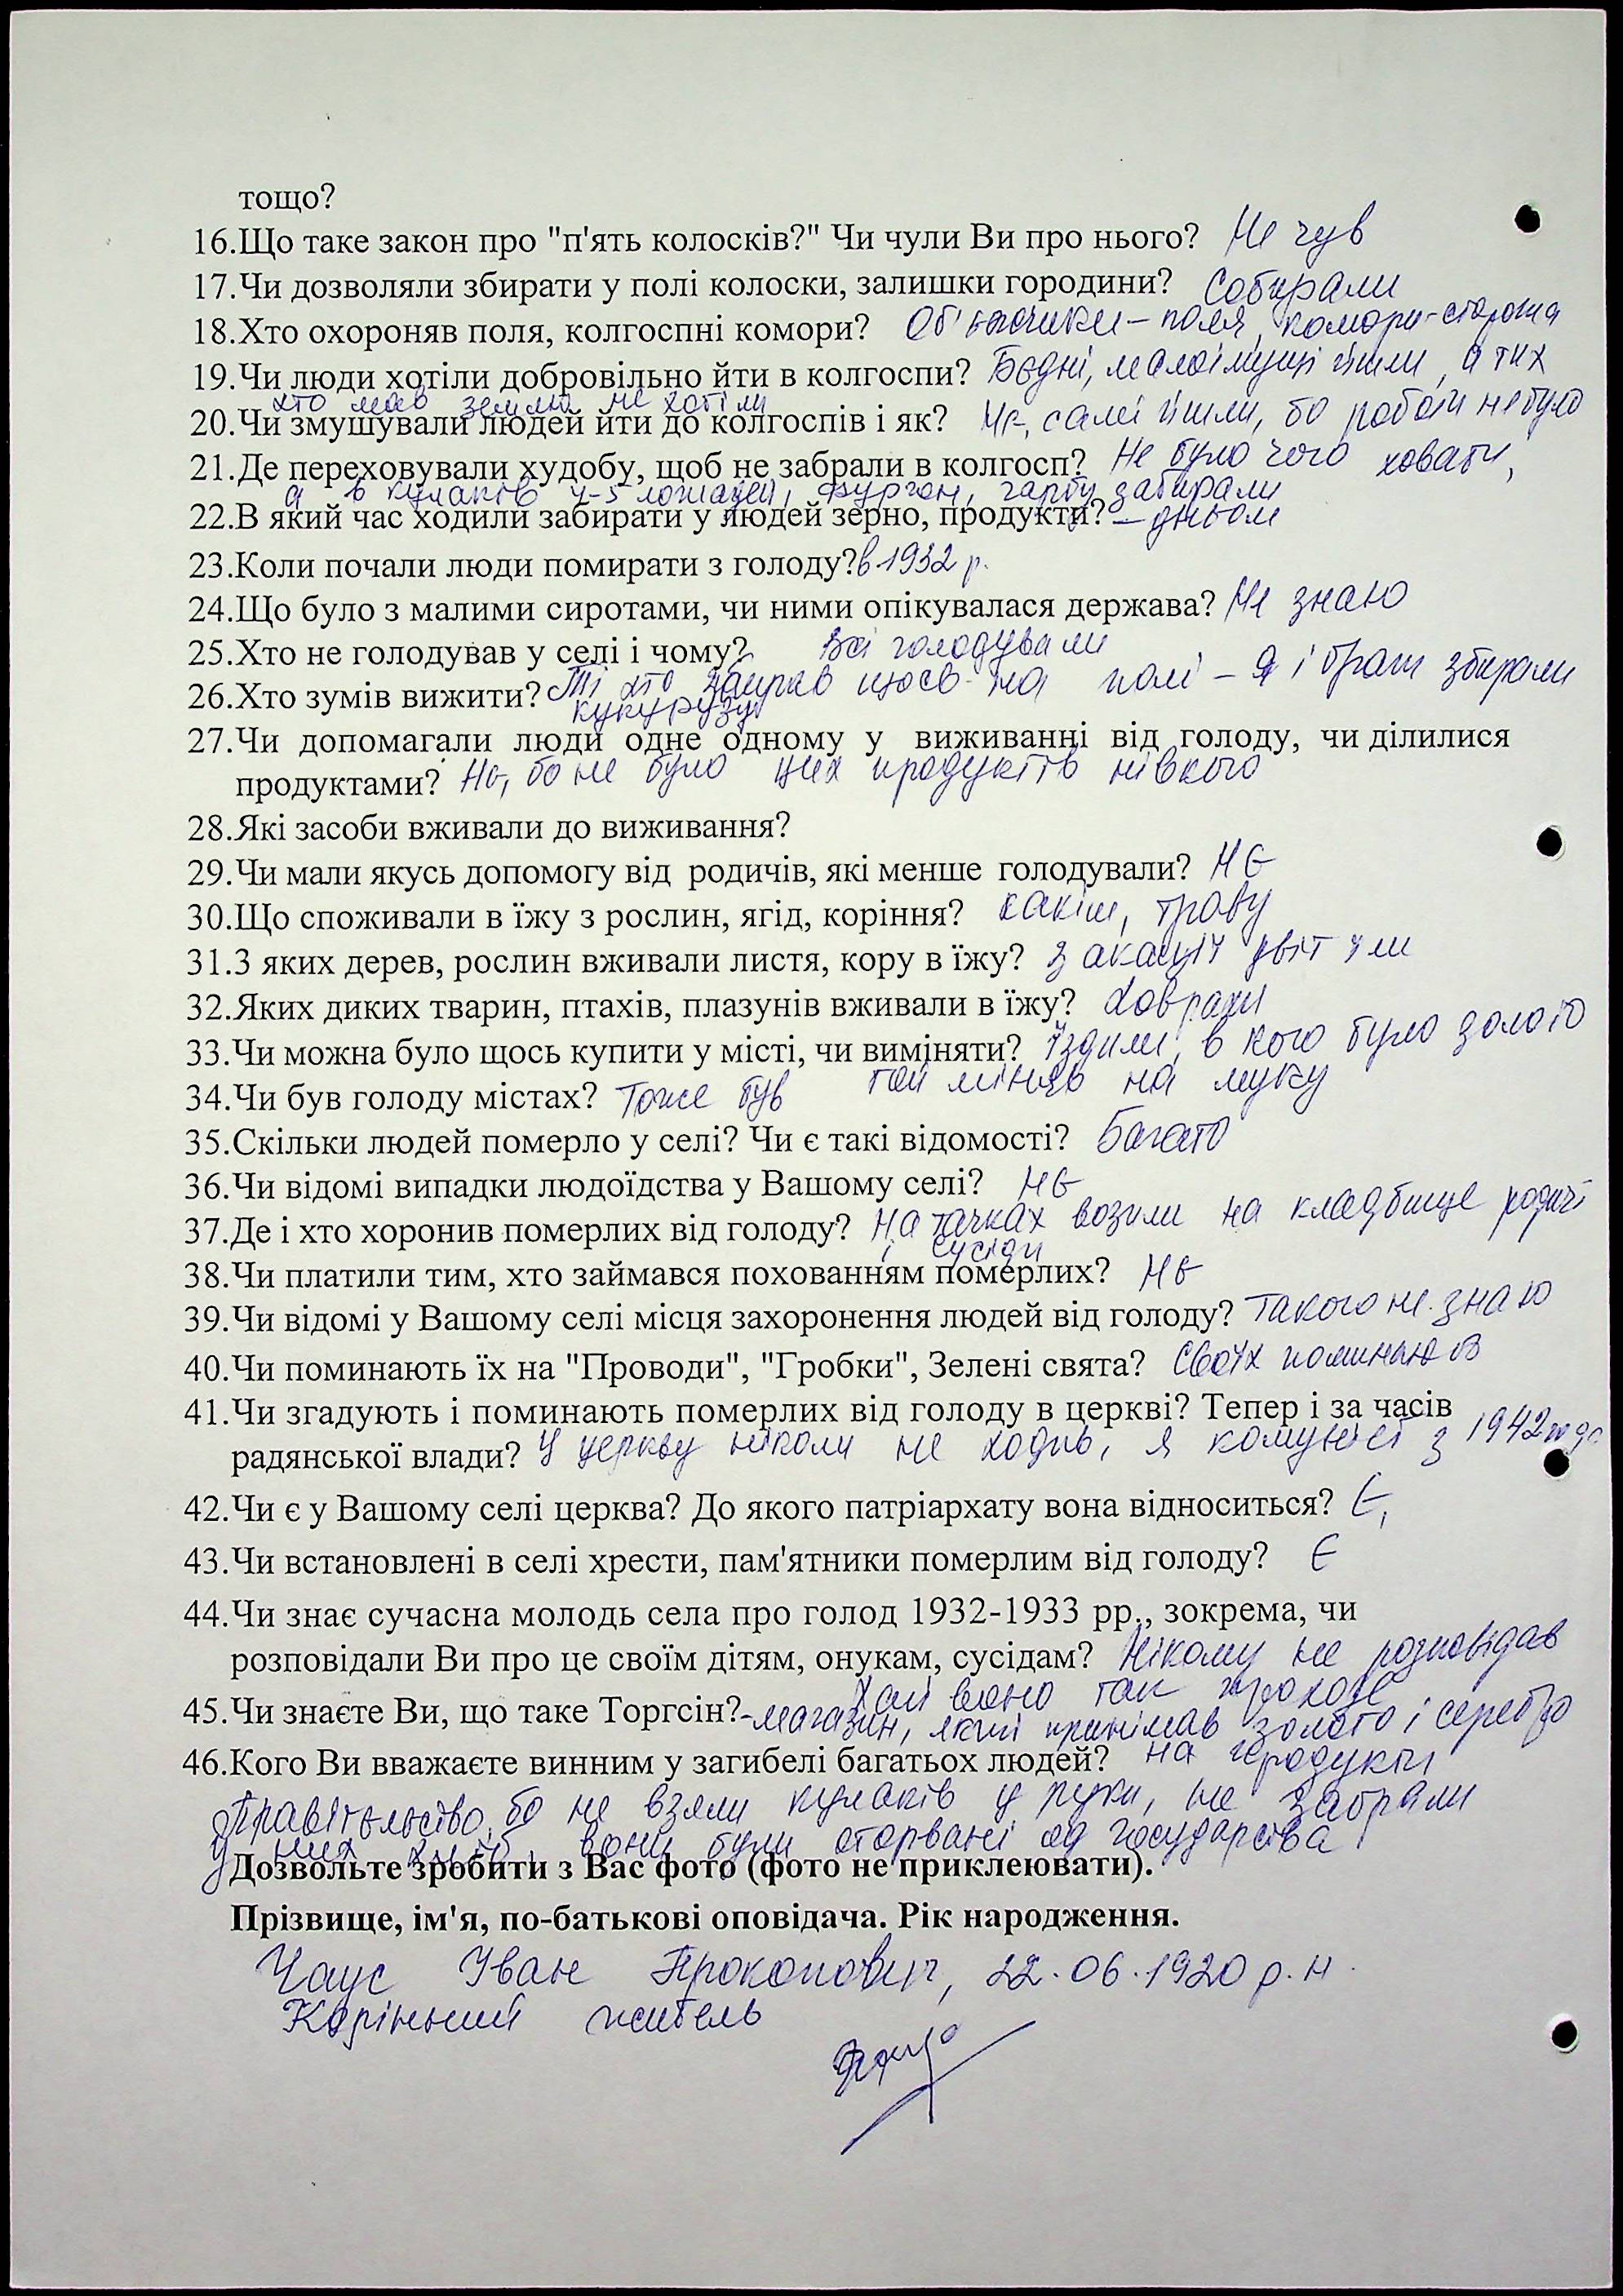 тощо?
16.Що таке закон про "п'ять колосків?" Чи чули Ви про нього? Не чув
17.Чи дозволяли збирати у полі колоски, залишки городини? Собирали
18.Хто охороняв поля, колгоспні комори? Об'єзчики – поля, комори - сторожа
19.Чи люди хотіли добровільно йти в колгоспи? Бєдні, малоімущі йшли, а тих
хто мав землю не хотіли
20.Чи змушували людей йти до колгоспів і як? Нє, самі йшли, бо роботи не було
21.Де переховували худобу, щоб не забрали в колгосп? Не було чого ховати,
а в кулаків 4-5 лошадей, фургон, гарбу забирали
22.В який час ходили забирати у людей зерно, продукти? – дньом
23.Коли почали люди помирати з голоду? в 1932 р.
24.Що було з малими сиротами, чи ними опікувалася держава? Не знаю
25.Хто не голодував у селі і чому? Всі голодували
26.Хто зумів вижити? Ті хто збирав щось на полі – я і брат збирали
кукурузу
27.Чи допомагали люди одне одному у виживанні від голоду, чи ділилися
продуктами? Нє, бо не було цих продуктів ні в кого
28.Які засоби вживали до виживання?
29.Чи мали якусь допомогу від родичів, які менше голодували? Нє
30.Що споживали в їжу з рослин, ягід, коріння? траву
31.З яких дерев, рослин вживали листя, кору в їжу? З акації цвіт їли
32.Яких диких тварин, птахів, плазунів вживали в їжу? Ховрахи
33.Чи можна було щось купити у місті, чи виміняти? Їздили, в кого було золото
той міняв на муку
34.Чи був голоду містах? Тоже був
35.Скільки людей померло у селі? Чи є такі відомості? Багато
36.Чи відомі випадки людоїдства у Вашому селі? Нє
37.Де і хто хоронив померлих від голоду? На тачках возили на кладбище родичі
і сусіди
38.Чи платили тим, хто займався похованням померлих? Нє
39.Чи відомі у Вашому селі місця захоронення людей від голоду? Такого не знаю
40.Чи поминають їх на "Проводи", "Гробки", Зелені свята? Своїх поминають
41.Чи згадують і поминають померлих від голоду в церкві? Тепер і за часів
радянської влади? У церкву ніколи не ходив, я комуніст з 1942 года
42.Чи є у Вашому селі церква? До якого патріархату вона відноситься? Є,
43.Чи встановлені в селі хрести, пам'ятники померлим від голоду? Є
44.Чи знає сучасна молодь села про голод 1932-1933 рр., зокрема, чи
розповідали Ви про це своїм дітям, онукам, сусідам? Нікому не розповідав
хай воно так проходе
45.Чи знаєте Ви, що таке Торгсін? - магазин, який принімав золото і серебро
на продукти
46.Кого Ви вважаєте винним у загибелі багатьох людей?
Правітєльство, бо не взяли кулаків у руки, не забрали
у них хліб, вони були оторвані од государства
Дозвольте зробити з Вас фото (фото не приклеювати).
Прізвище, ім'я, по-батькові оповідача. Рік народження.
Чаус Іван Прокопович, 22.06.1920 р.н.
Корінний житель